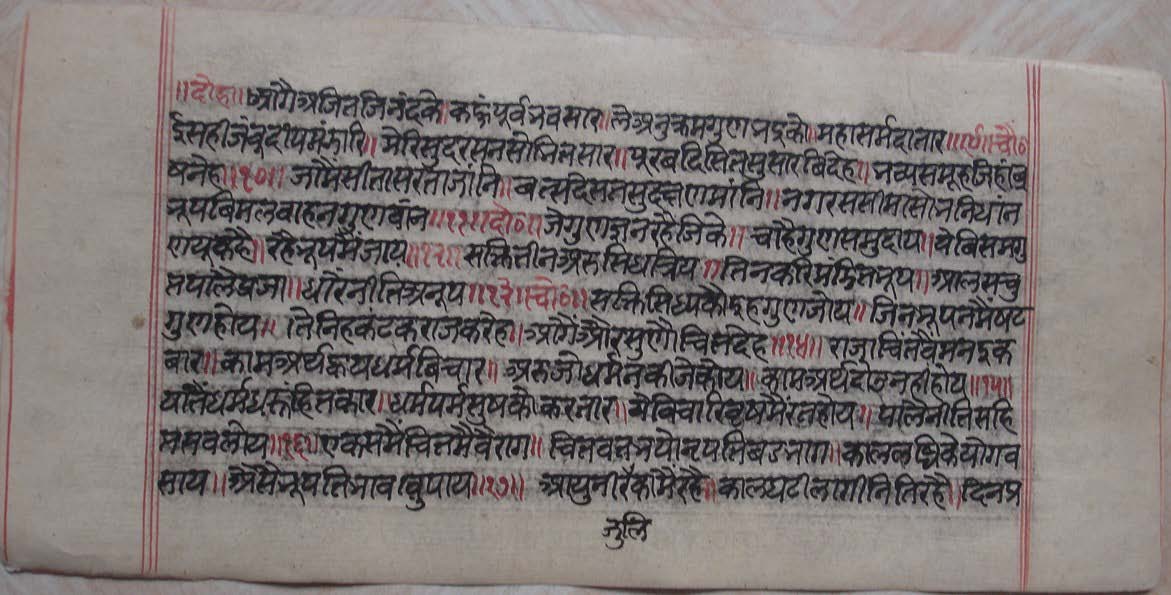 ॥दोहा॥ आगै अजित जिनंदके कहूं पूर्व भव सार॥ ले अनुक्रम गुण भद्रको॥ महा सर्म दातार॥९॥चौ०
ईसही जंबूदीप मंझारि॥ मेरि सुदरसन सोभित सार॥ पूरब दिसि तसु सार बिदेह॥ भव्य समूह जिहां
षनेह॥१०॥ जामैं सीता सरता जानि॥ बत्स देस तसु दक्षण मांनि॥ नगर ससीमा सोभ निधांन
भूप बिमल वाहन गुणवांन॥११॥दो०॥ जे गुण जन रहै जिके॥ चाहै गुण समुदाय॥ ये बिसमगु
ण यूक है॥ रहै भूप मै जाय॥१२॥ सक्ति तीन अरु सिधि त्रिय॥ तिन करि मंडित भूप॥ आलस चु
त पालै प्रजा॥ धारै नीति अनूप॥१३॥चौ०॥ सक्ति सिध्य को इह गुण जोय॥ जिन भूपन मैं षट
गुण होय॥ ते निहकंटक राज करेह॥ आगै और सुणौ चित देह॥१४॥ राजा चितवै मन इक
बार॥ काम अर्थ कथ धर्म बिचार॥ अरु जो धर्म न कीजे कोय॥ काम अर्थ दोऊ नही होय॥१५॥
यातैं धर्म धरूं हितकार॥ धर्म पर्म सुषको करतार॥ ये विचारि वृष मैं रत होय॥ पालै नीति सहि
त सव लोय॥१६॥ एक समैं चित मै वैराग॥ चितवत भयो नृपति बड भाग॥ काल लब्धिके योग व
साय॥ अैसे भूपति भाव पाय॥१७॥ आयु नीर कै मैं रहै॥ काल घटी लागी निति रहै॥ दिन प्र
जुलि